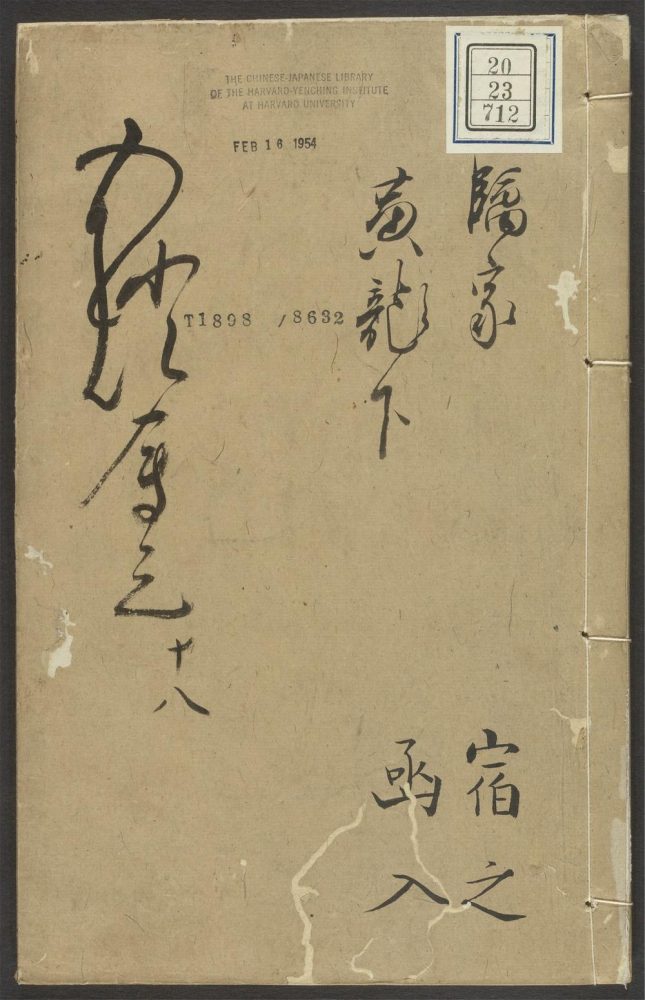 THE CHINESE-JAPANESE LIBRARY
OF THE HARVARD-YENCHING INSTITUTE
AT HARVARD UNIVERSITY
FEB 16 1954
20
23
712
家
黄龍下
T1898 /8632
十八
宿之
函入